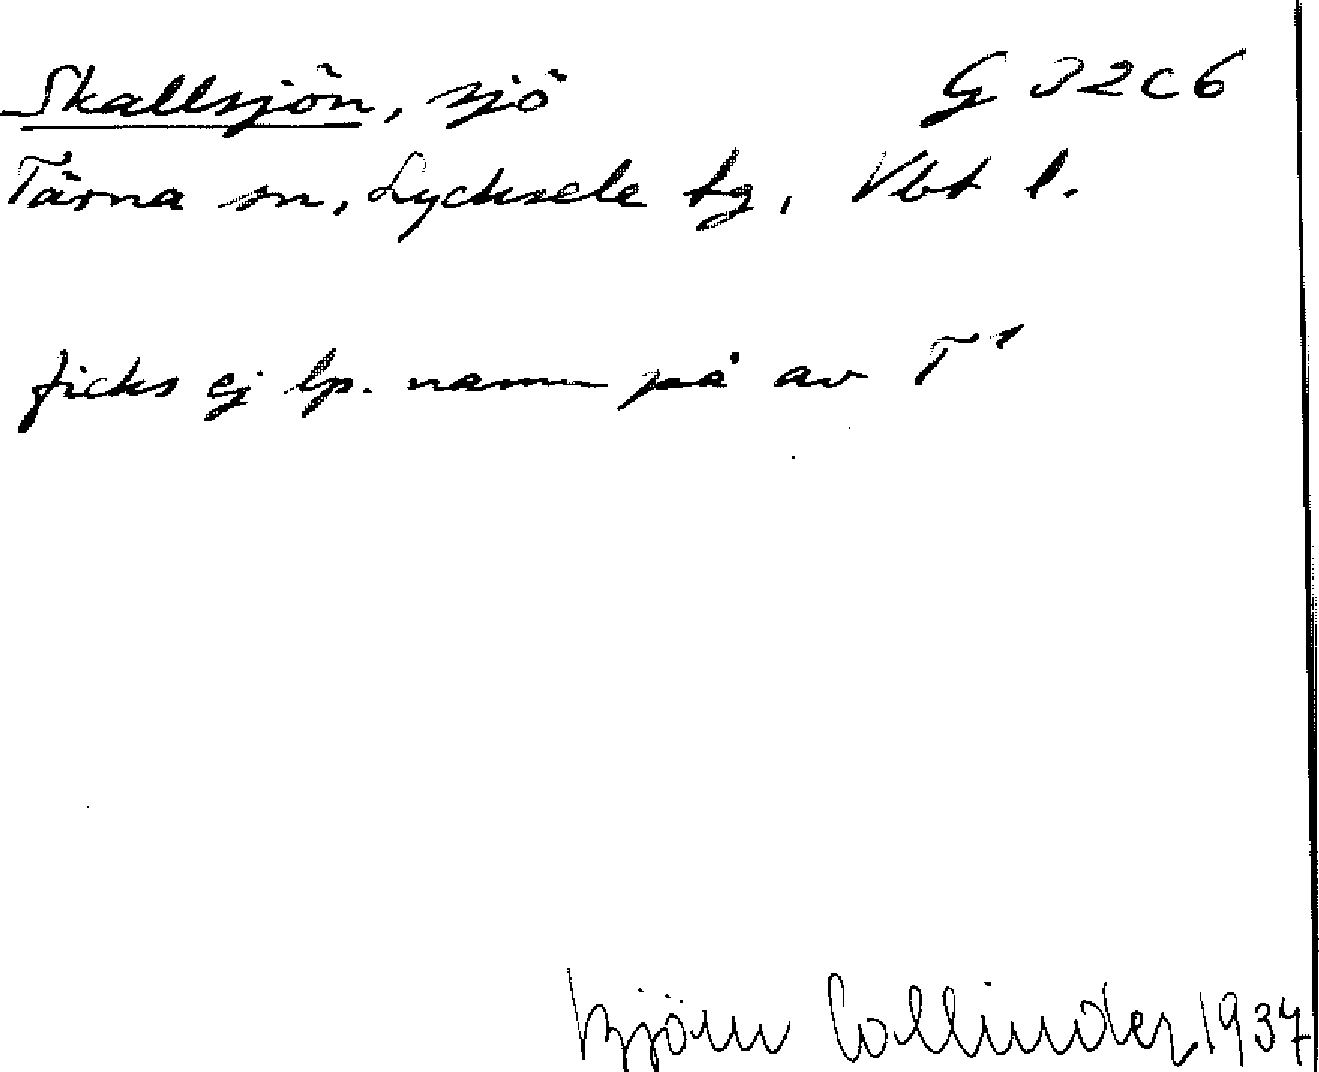 Skallsjön, sjö G 32c6
Tärna sn, Lycksele lg, Vbt l.
ficks ej lp. namn på av T¹
Björn Collinder 1937